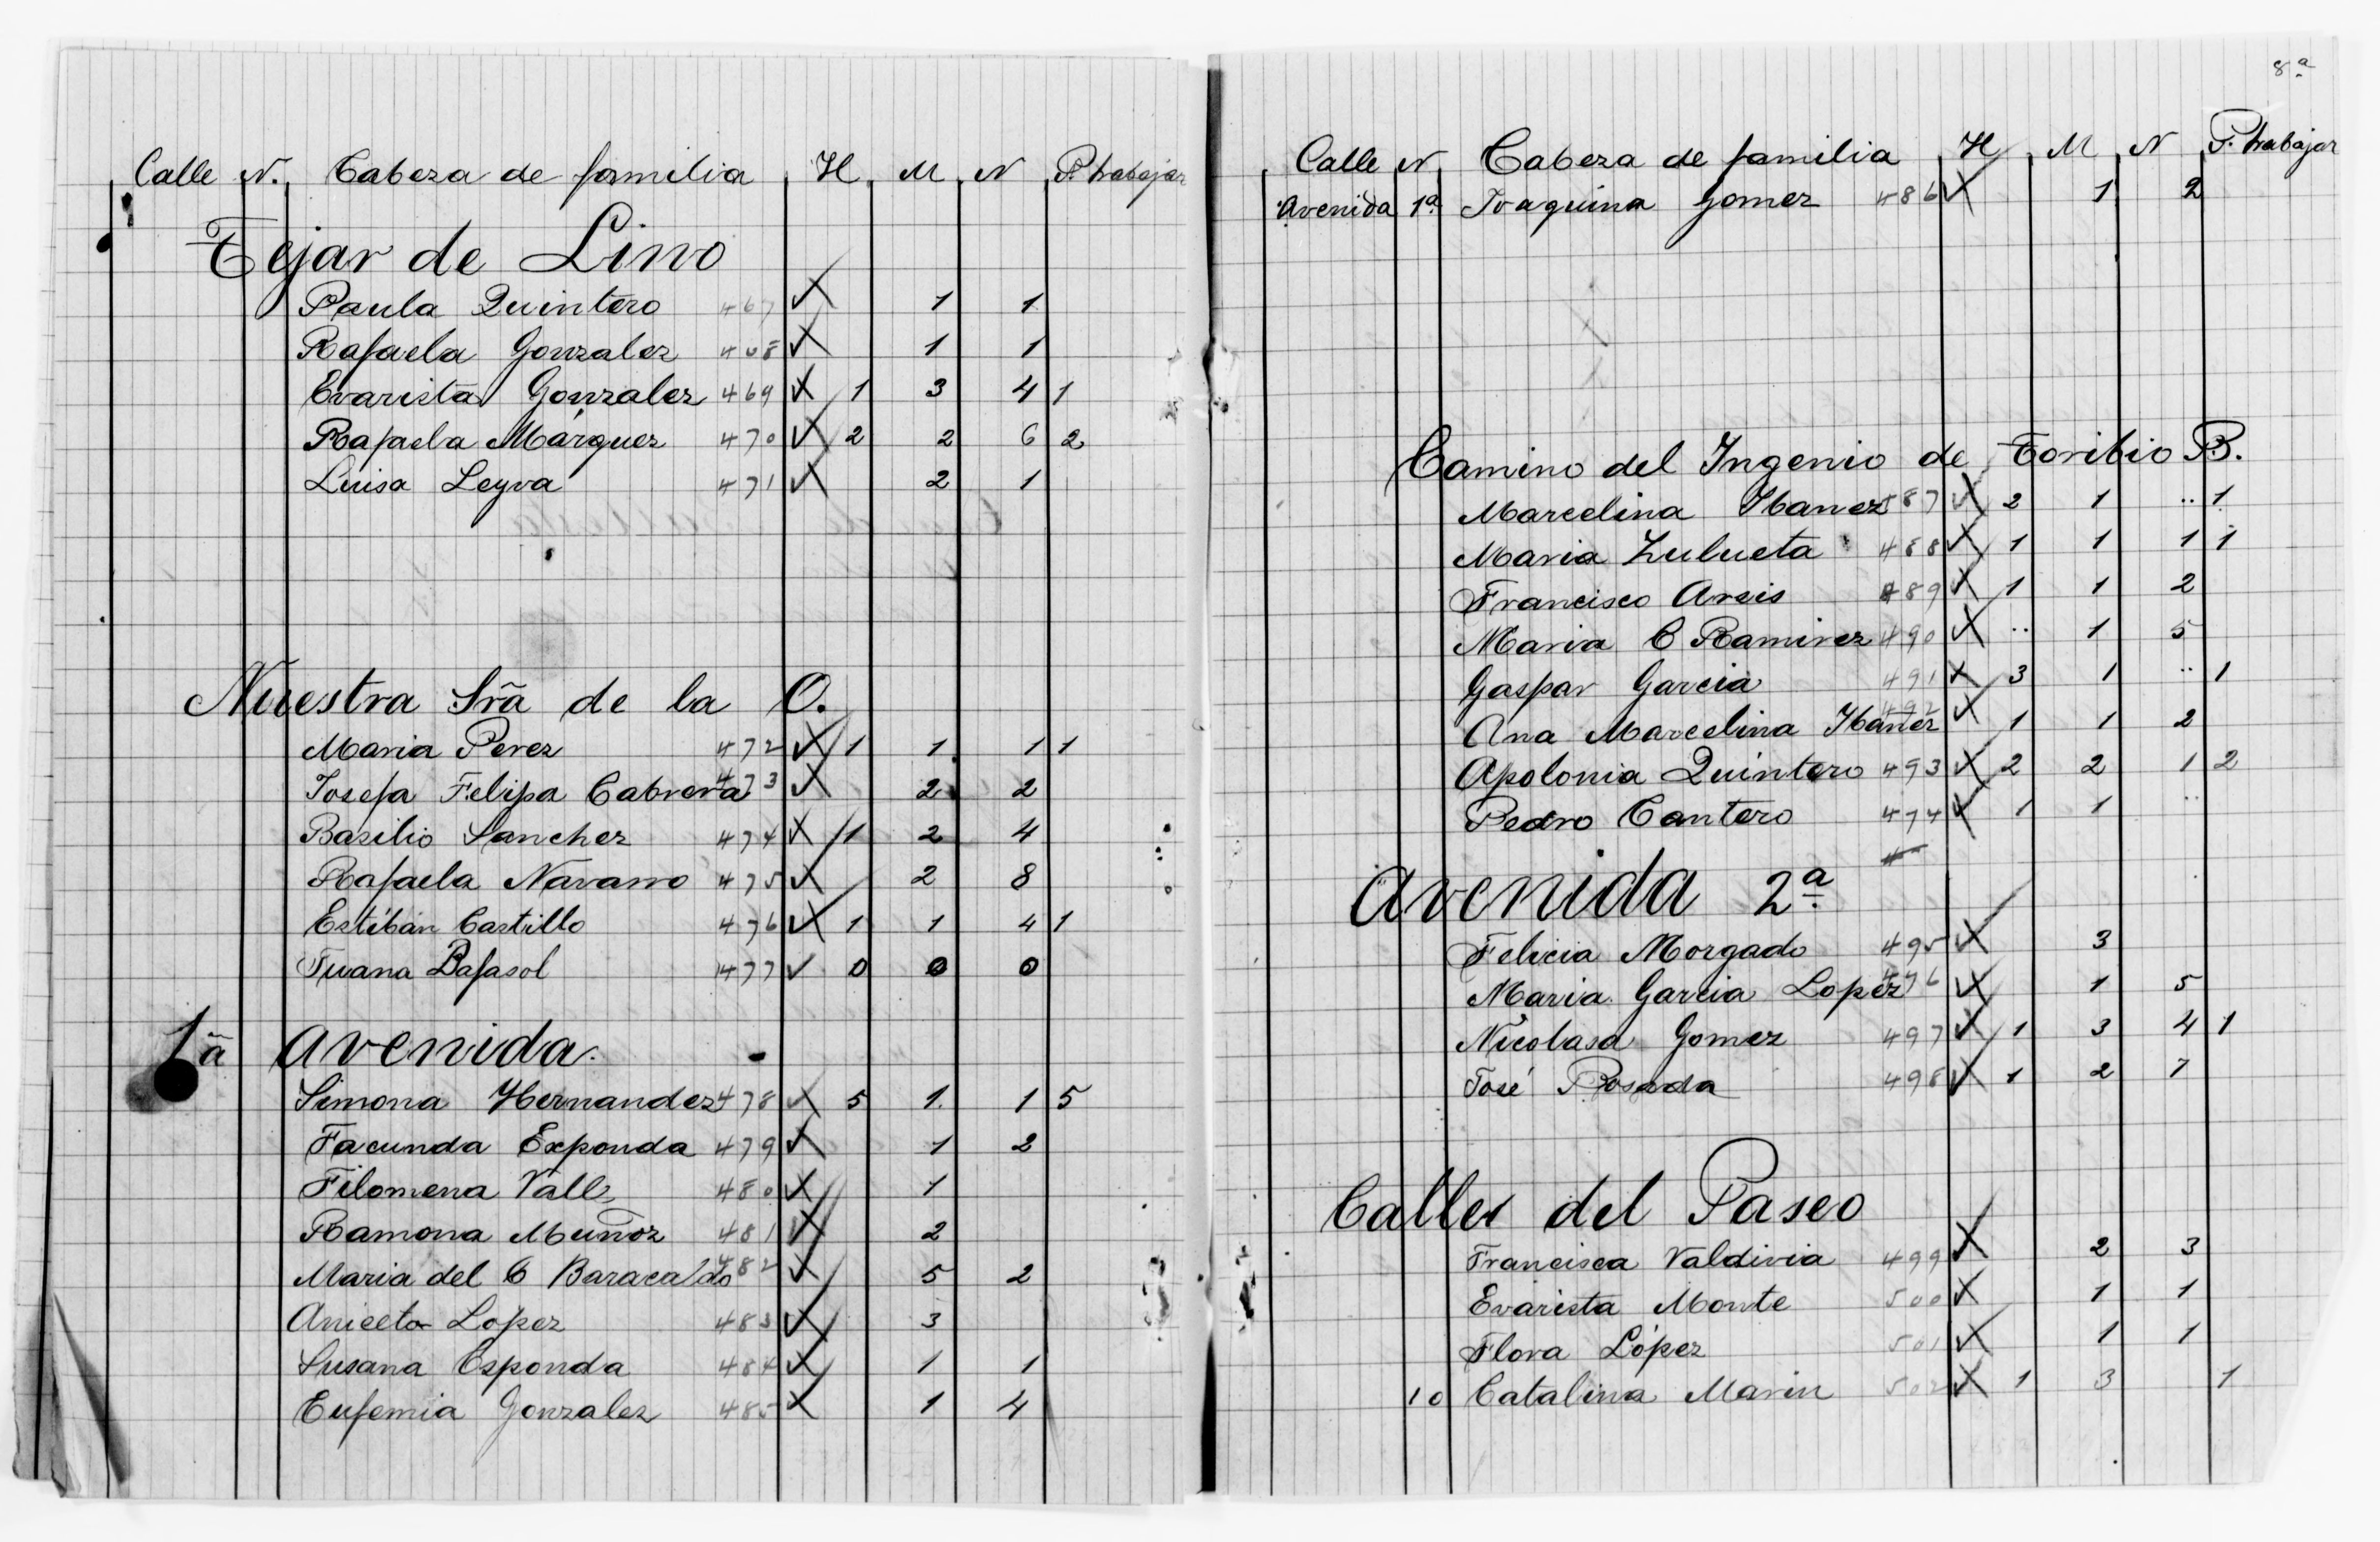 Calle N. Cabeza de familia H M N P. trabajar
Tejar de Lino
Paula Quintero 467 1 1
Rafaela Gonzalez 468 1 1
Evarista Gonzalez 469 1 3 4 1
Rafaela Márquez 470 2 2 6 2
Luisa Leyva 471 2 1
Nuestra Srã de la O.
Maria Perez 472 1 1 1 1
Josefa Felipa Cabrera 473 2 2
Basilio Sanchez 474 1 2 4
Rafaela Navarro 475 2 8
Estéban Castillo 476 1 1 4 1
Juana Bafasol 477 0 0 0
1ã Avenida.
Simona Hernandez 478 5 1 1 5
Facunda Exponda 479 1 2
Filomena Valle 480 1
Ramona Muñoz 481 2
Maria del C Baracaldo 482 5 2
Aniceto Lopez 483 3
Susana Esponda 484 1 1
Eufemia Gonzalez 485 1 4
8ª
Calle N. Cabeza de familia H M N P. trabajar
Avenida 1ª Joaquina Gomez 486 1 2
Camino del Ingenio de Toribio B.
Marcelina Ibanez 487 2 1 .. 1
Maria Zulueta 488 1 1 1 1
Francisco Arsis 489 1 1 2
Maria C Ramirez 490 .. 1 5
Gaspar Garcia 491 3 1 .. 1
Ana Marcelina Ibañez 492 1 1 2
Apolonia Quintero 493 2 2 1 2
Pedro Cantero 474 1 1 ..
Avenida 2ª
Felicia Morgado 495 3
Maria Garcia Lopez 496 1 5
Nicolasa Gomez 497 1 3 4 1
José Posada 498 1 2 1
Calle del Paseo
Francisca Valdivia 499 2 3
Evarista Monte 500 1 1
Flora López 501 1 1
10 Catalina Marin 502 1 3 1